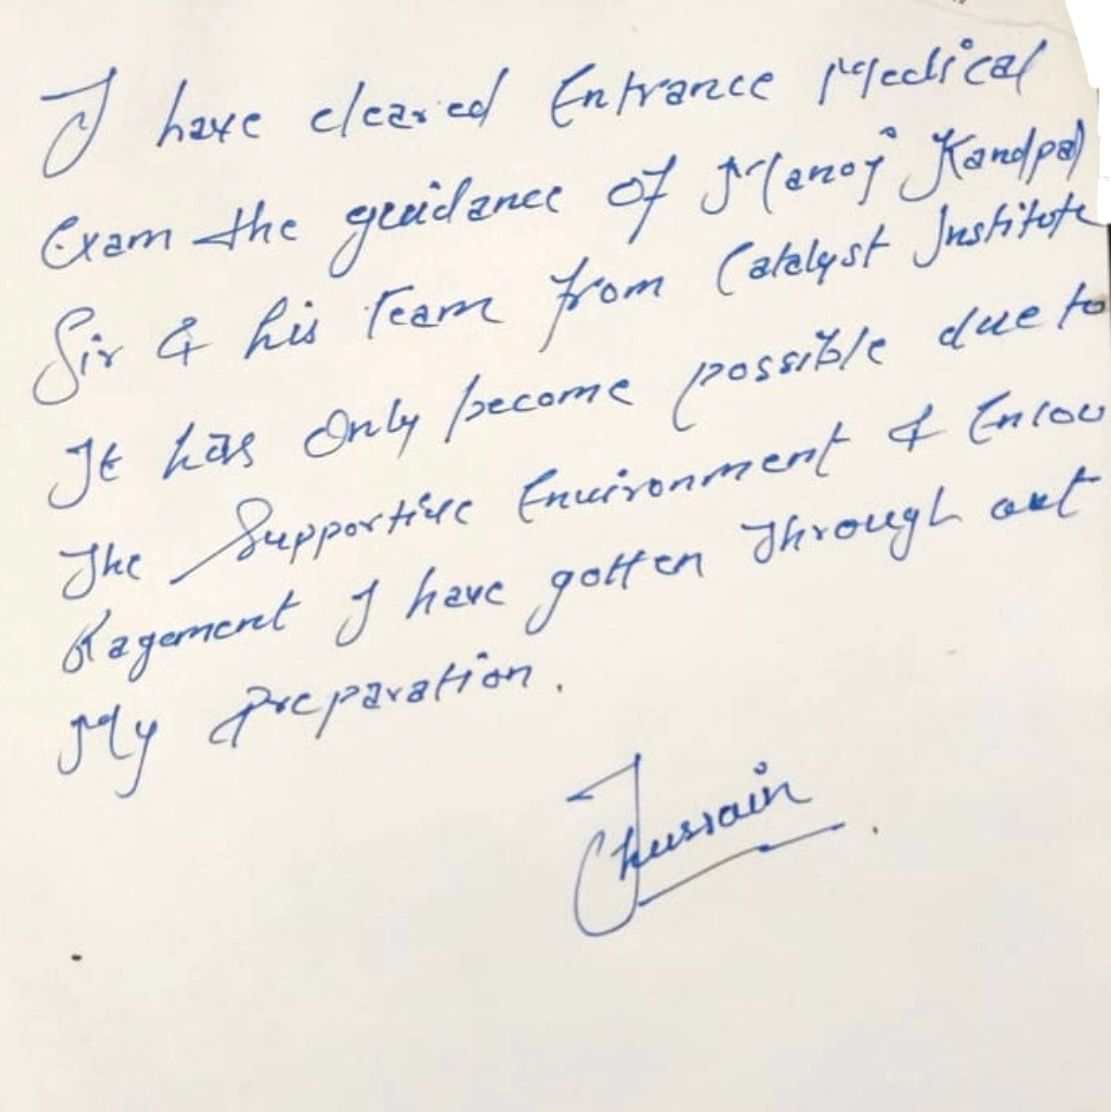 I have cleared Entrance Medical
Exam the guidance of Manoj Kandpal
Sir & his Team from Catalyst Institute
It has Only become possible due to
The Supportive Environment & Encou
Ragement I have gotten Through out
My preparation.
Jhussain